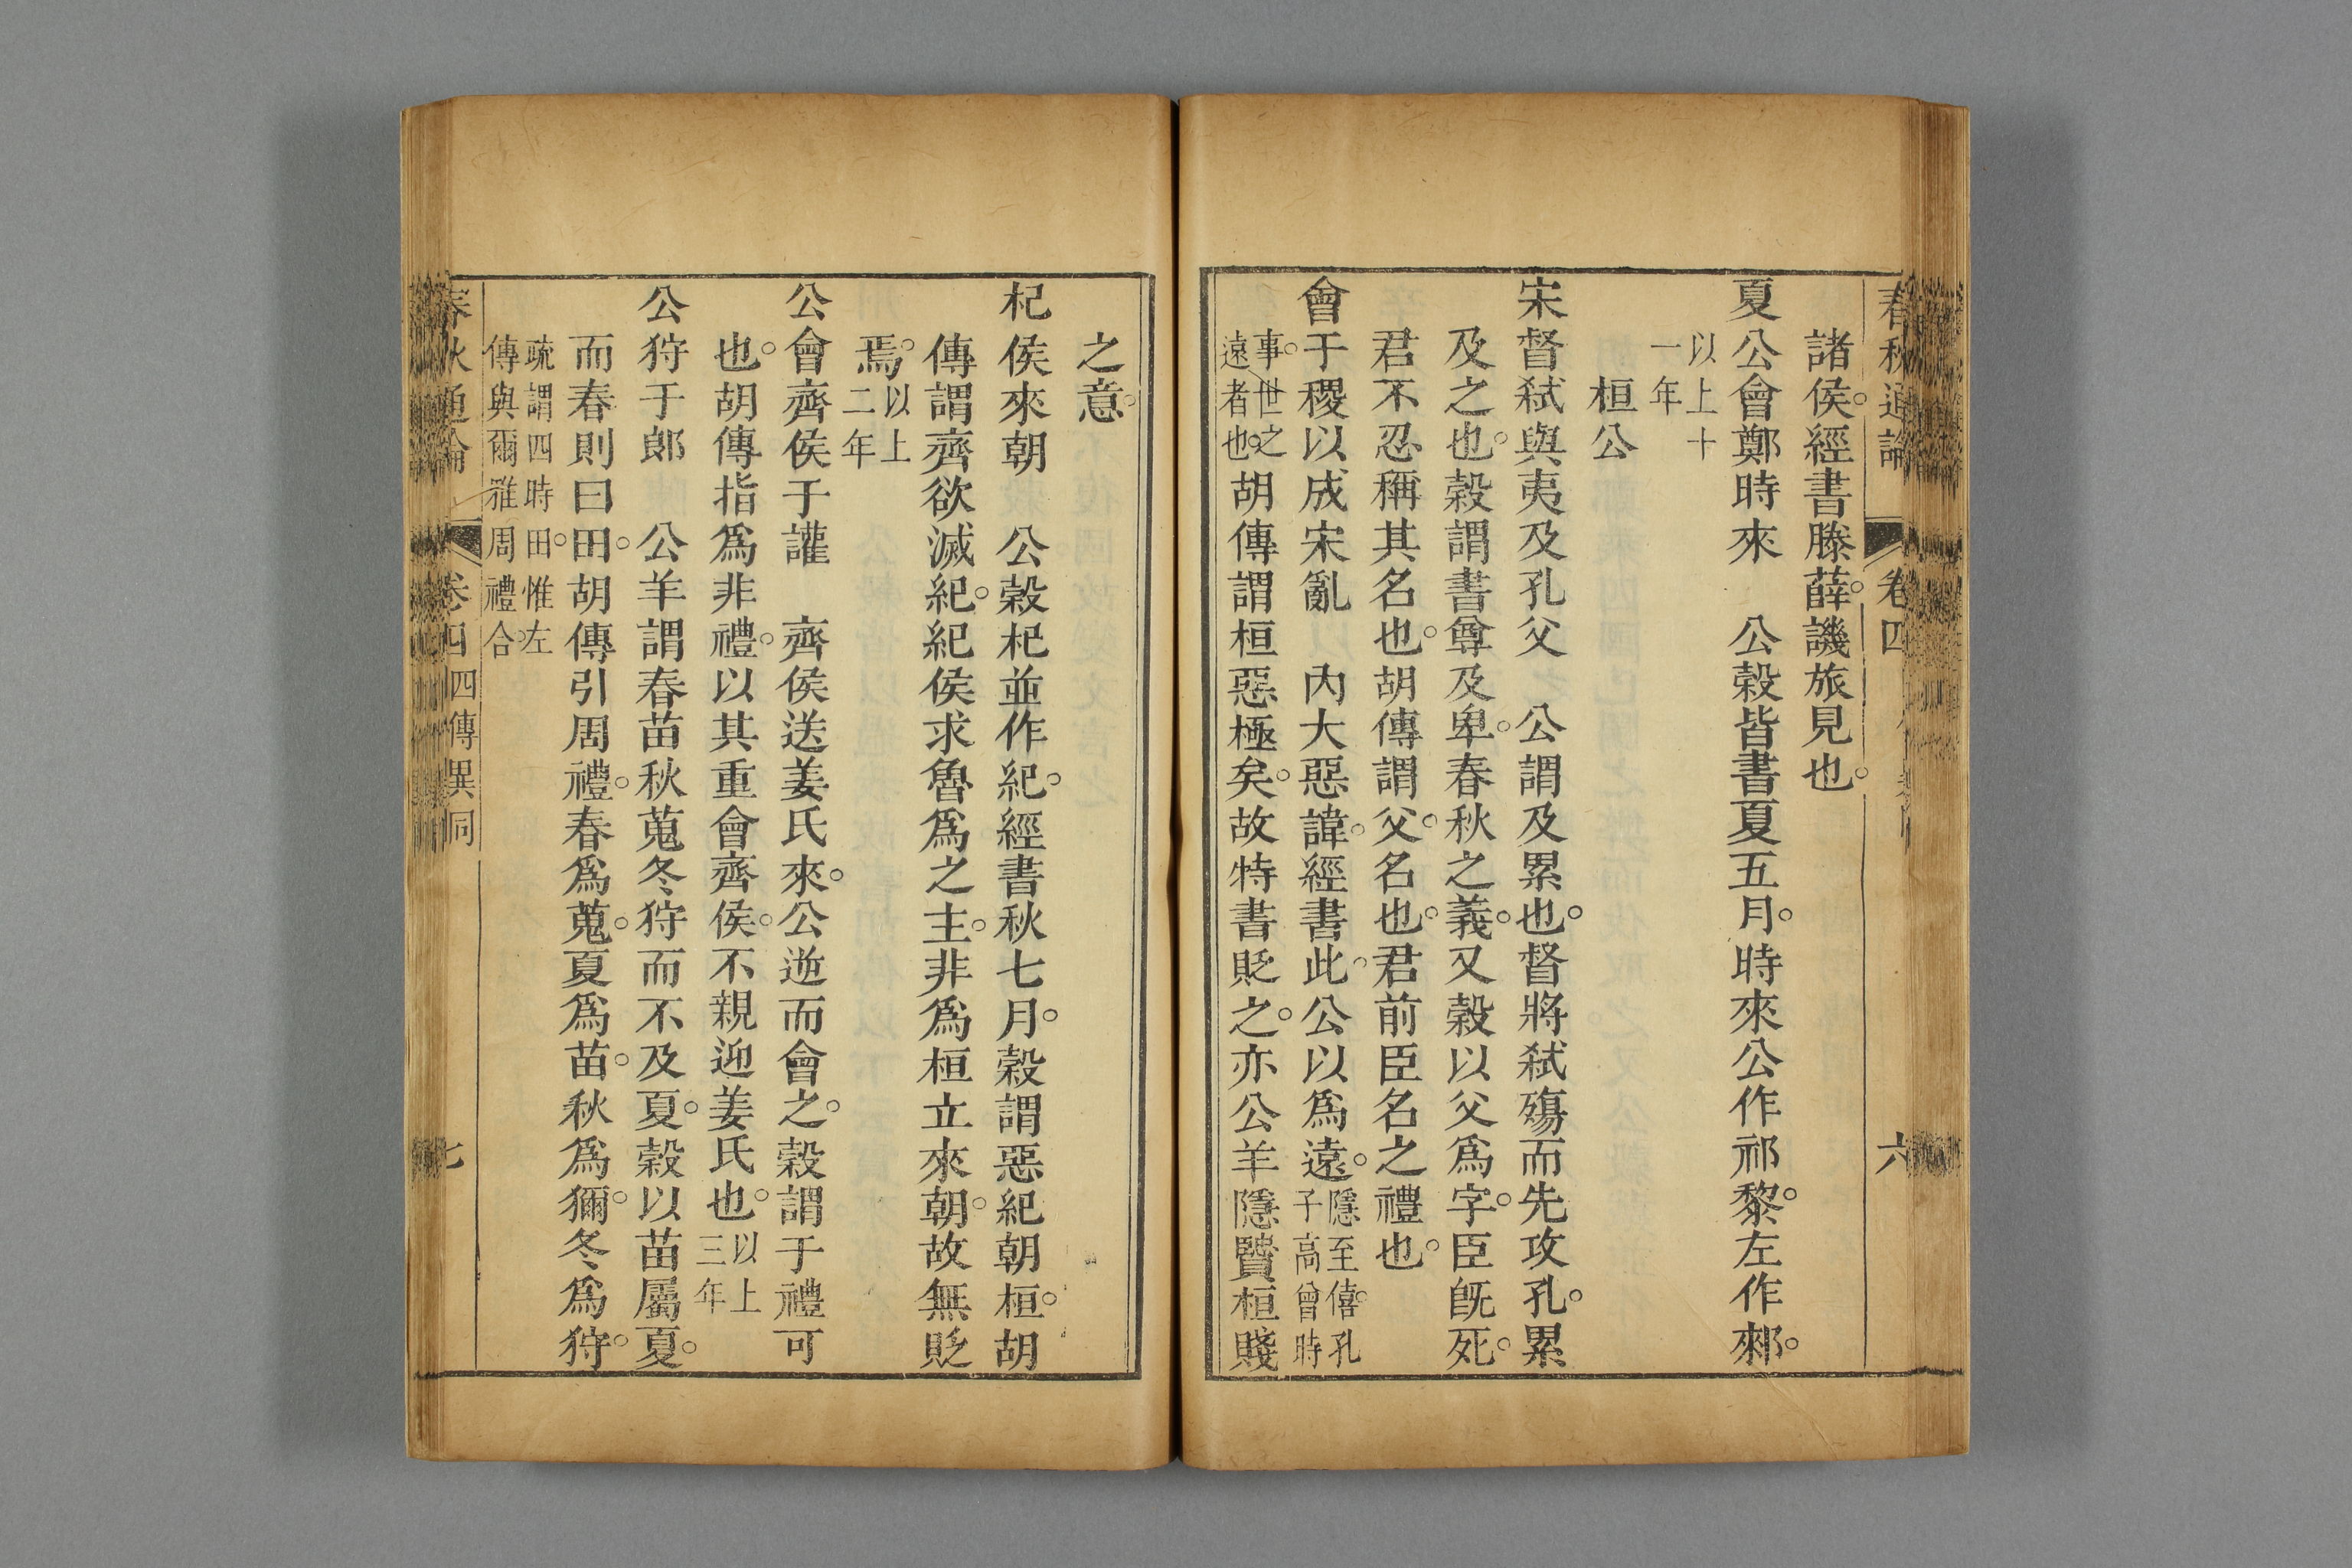 春秋通論 卷四 六
諸侯。經書滕薛。譏旅見也。
夏公會鄭時來　公穀皆書夏五月。時來公作祁黎。左作郲。
以上十一年
桓公
宋督弒與夷及孔父　公謂及累也。督將弒殤而先攻孔。累
及之也。穀謂書尊及卑。春秋之義。又穀以父爲字。臣旣死。
君不忍稱其名也。胡傳謂父。名也。君前臣名之禮也。
會于稷以成宋亂　內大惡諱。經書此。公以爲遠。隱至僖。孔子高曾時
事。世之遠者也。胡傳謂桓惡極矣。故特書貶之。亦公羊隱賢桓賤
之意。
杞侯來朝　公穀杞並作紀。經書秋七月。穀謂惡紀朝桓。胡
傳謂齊欲滅紀。紀侯求魯爲之主。非爲桓立來朝。故無貶
焉。以上二年
公會齊侯于讙　齊侯送姜氏來。公逆而會之。穀謂于禮可
也。胡傳指爲非禮。以其重會齊侯。不親迎姜氏也。以上三年
公狩于郎　公羊謂春苗秋蒐冬狩而不及夏。穀以苗屬夏。
而春則曰田。胡傳引周禮。春爲蒐。夏爲苗。秋爲獮。冬爲狩。
疏謂四時田。惟左傳與爾雅周禮合。
春秋通論 卷四 四傳異同 七